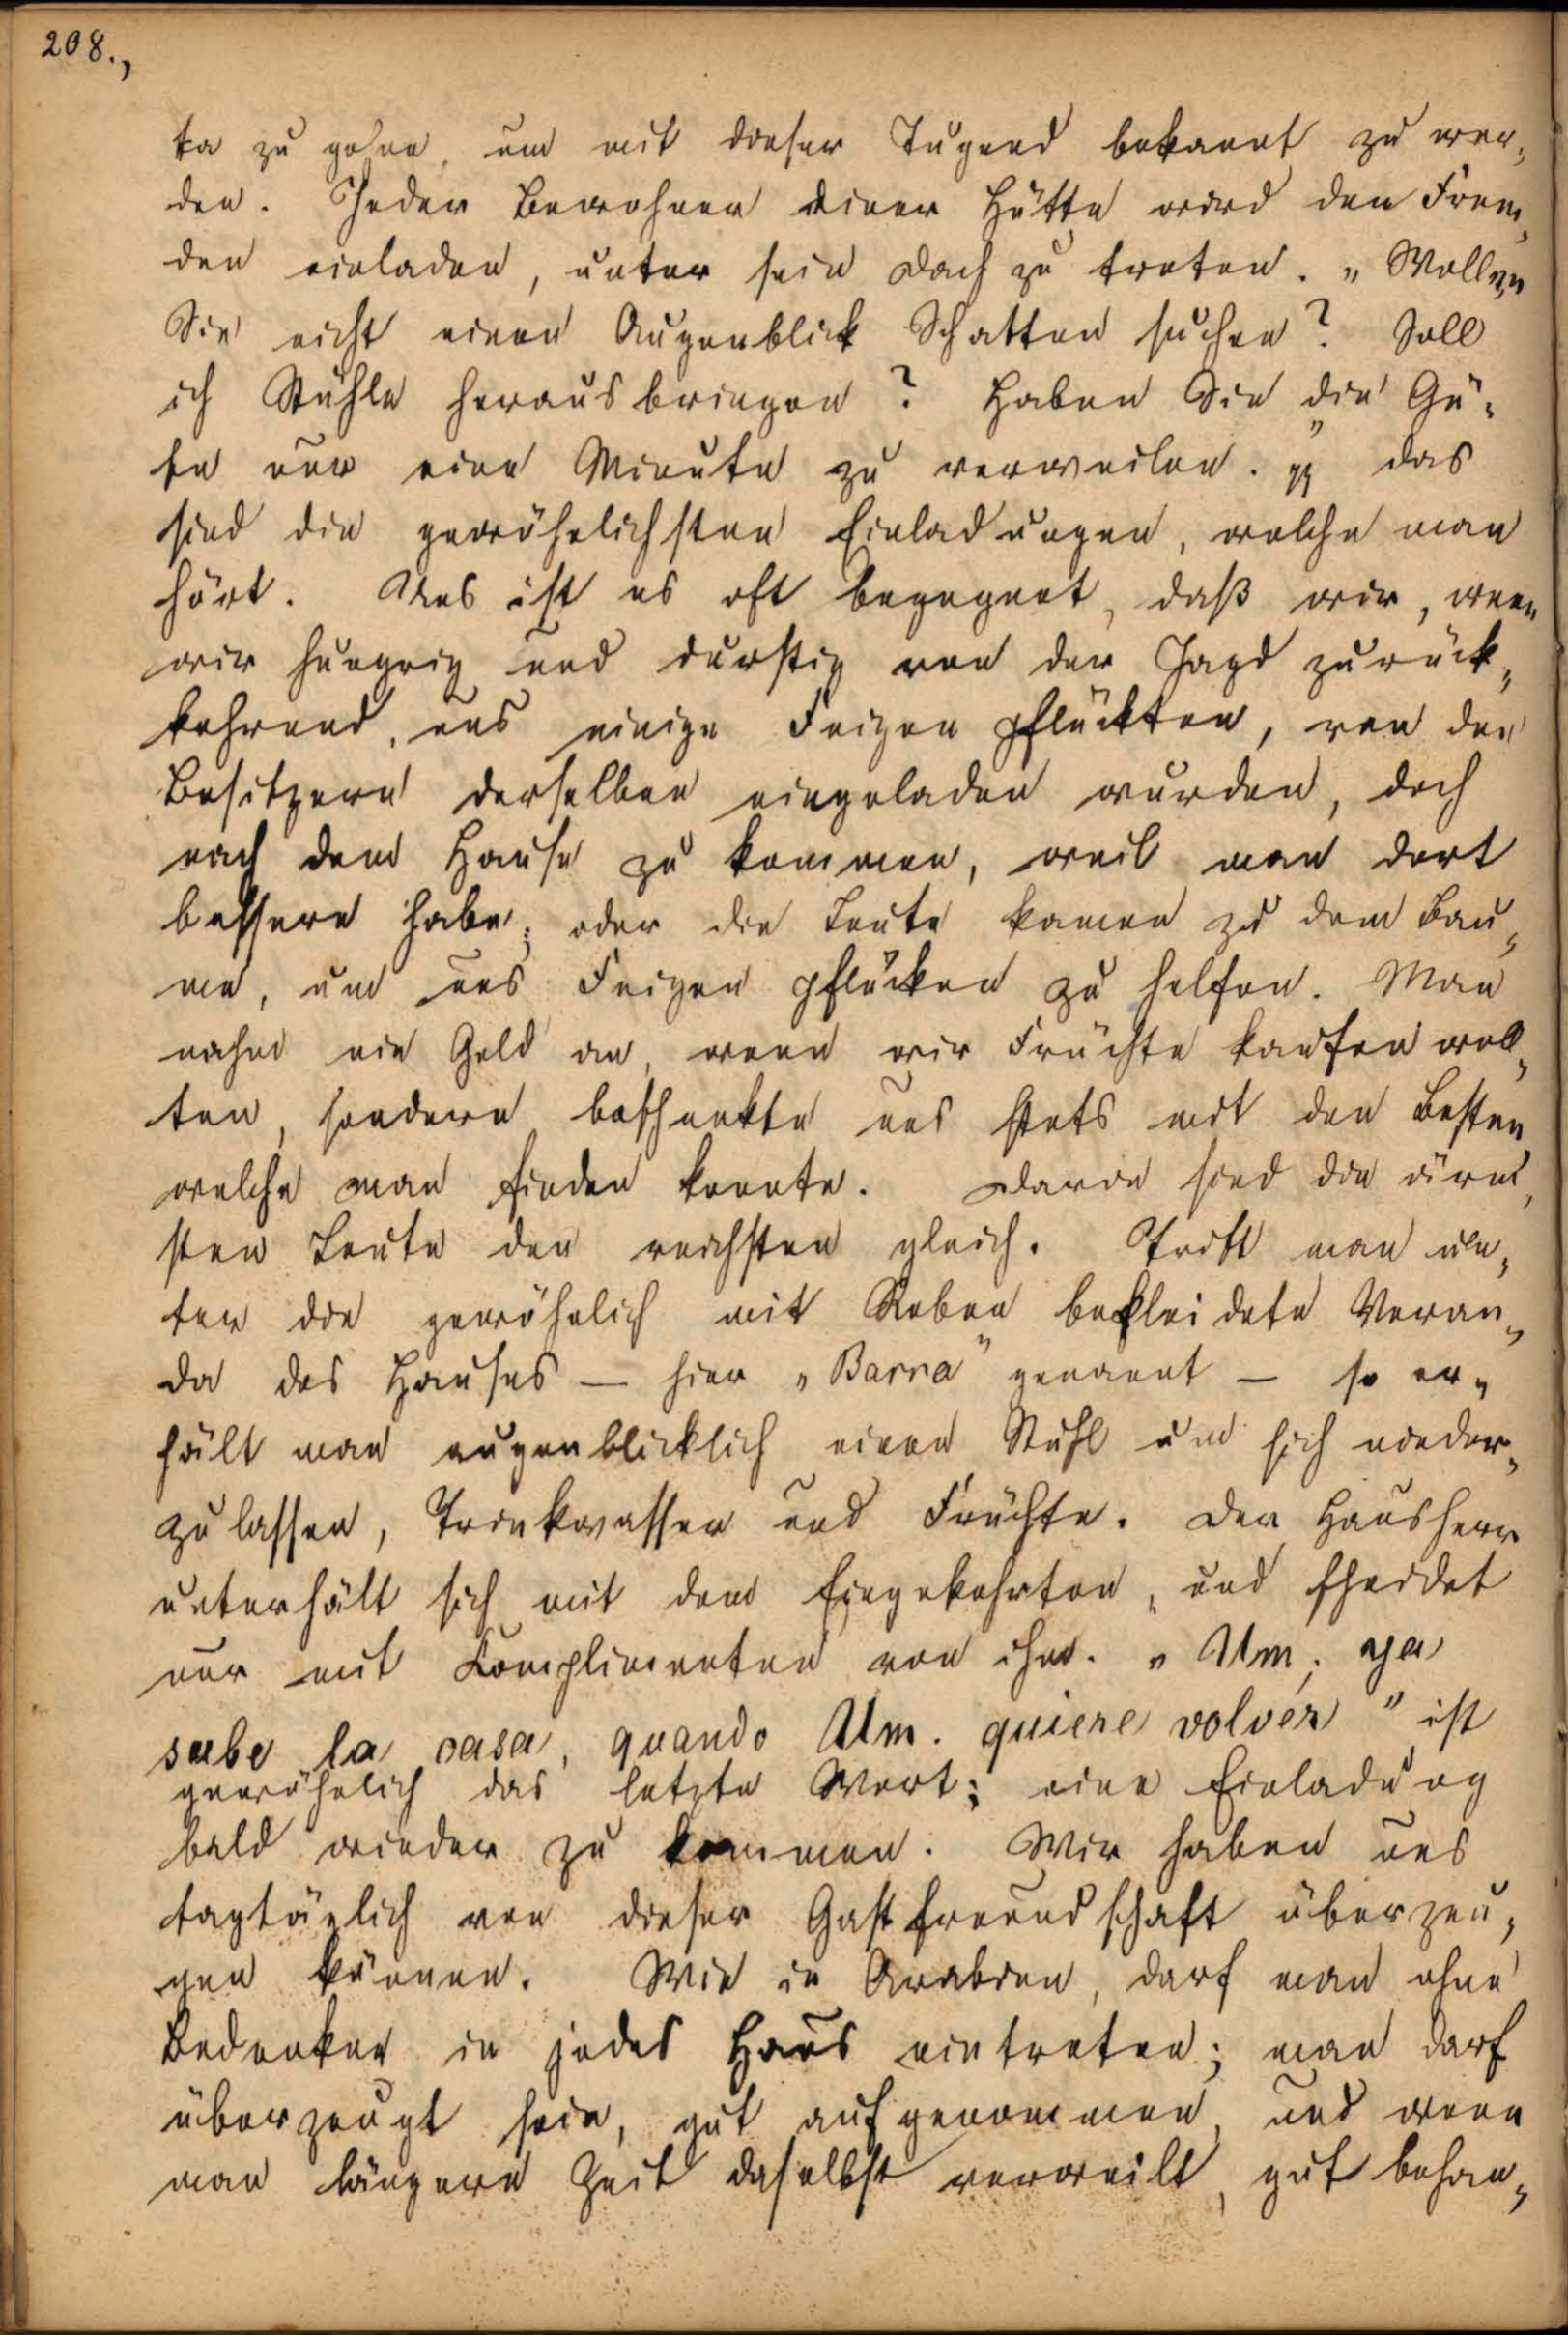 208.,
ta zu gehen, um mit dieser Tugend bekannt zu wer„
den. Jeder Bewohner einer Hütte wird den Frem„
den einladen, unter sein Dach zu treten. „Wollen
Sie nicht einen Augenblick Schatten suchen? Soll
ich Stühle herausbringen? Haben Sie die Gü„
te nur eine Minute zu verweilen.“ das
sind die gewöhnlichsten Einladungen, welche man
hört. Uns ist es oft begegnet, daß wir, wenn
wir hungrig und durstig von der Jagd zurück„
kehrend, uns einige Feigen pflückten, von den
Besitzern derselben eingeladen wurden, doch
nach dem Hause zu kommen, weil man dort
bessere habe; oder die Leute kamen zu dem Bau„
me, um uns Feigen pflücken zu helfen. Man
nahm nie Geld an, wenn wir Früchte kaufen woll„
ten, sondern beschenkte uns stets mit den Besten
welche man finden konnte. Darin sind die ärm„
sten Leute den reichsten gleich. Tritt man un„
ter die gewöhnlich mit Reben bekleidete Veran„
da des Hauses — hier „Barra“ genannt — so er„
hält man augenblicklich einen Stuhl um sich nieder„
zulassen, Trinkwasser und Früchte. Der Hausherr
unterhält sich mit dem Eingekehrten, und scheidet
nur mit Complimenten von ihm. „Um. ya
sabe la casa, quando Um. quiere volver“ ist
gewöhnlich das letzte Wort; eine Einladung
bald wieder zu kommen. Wir haben uns
tagtäglich von dieser Gastfreundschaft überzeu„
gen können. Wie in Arabien, darf man ohne
Bedenken in jedes Haus eintreten; man darf
überzeugt sein, gut aufgenommen, und wenn
man längere Zeit daselbst verweilt, gut behan„